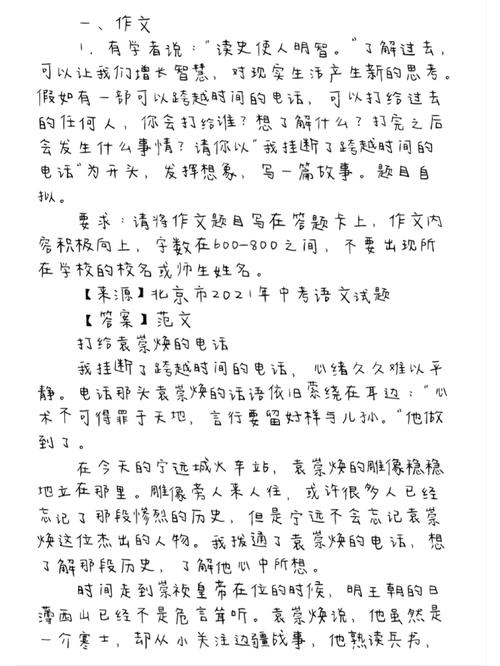 一、作文
1. 有学者说："读史使人明智。"了解过去，
可以让我们增长智慧，对现实生活产生新的思考。
假如有一部可以跨越时间的电话，可以打给过去
的任何人，你会打给谁？想了解什么？打完之后
会发生什么事情？请你以"我挂断了跨越时间的
电话"为开头，发挥想象，写一篇故事。题目自
拟。
要求：请将作文题目写在答题卡上，作文内
容积极向上，字数在600-800之间，不要出现所
在学校的校名或师生姓名。
【来源】北京市2021年中考语文试题
【答案】范文
打给袁崇焕的电话
我挂断了跨越时间的电话，心绪久久难以平
静。电话那头袁崇焕的话语依旧萦绕在耳边："心
术不可得罪于天地，言行要留好样与儿孙。"他做
到了。
在今天的宁远城火车站，袁崇焕的雕像稳稳
地立在那里。雕像旁人来人往，或许很多人已经
忘记了那段惨烈的历史，但是宁远不会忘记袁崇
焕这位杰出的人物。我拨通了袁崇焕的电话，想
了解那段历史，了解他心中所想。
时间走到崇祯皇帝在位的时候，明王朝的日
薄西山已经不是危言耸听。袁崇焕说，他虽然是
一个寒士，却从小关注边疆战事，他熟读兵书，